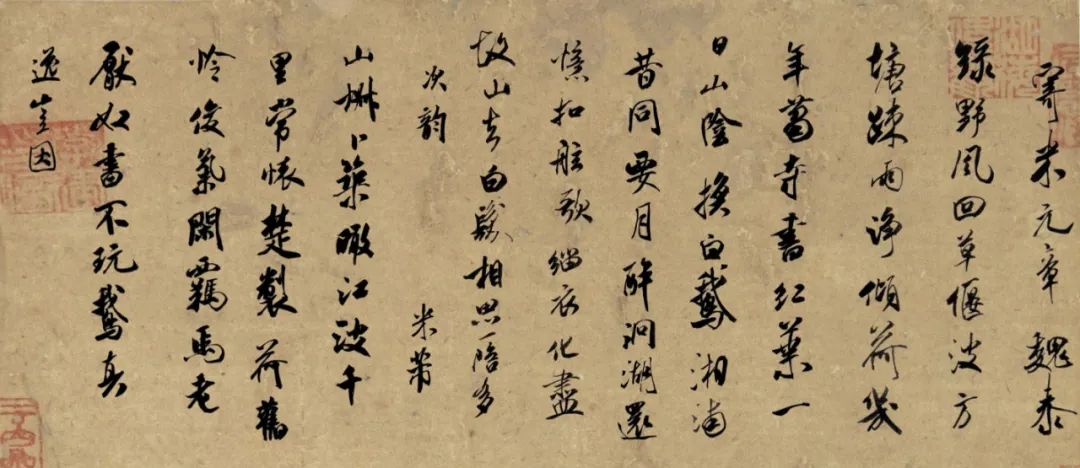 寄米元章 魏泰
綠野風回草偃波方
塘疎雨淨傾荷幾
年蕭寺書紅葉一
日山陰換白鵝湘浦
昔同要月醉洞湖還
憶扣舷歌緇衣化盡
故山去白髮相思一陪多
次韵 米芾
山椒卜築瞰江波千
里常懷楚製荷舊
怜俊氣閑羈馬老
厭奴書不玩鵝真
逸豈因